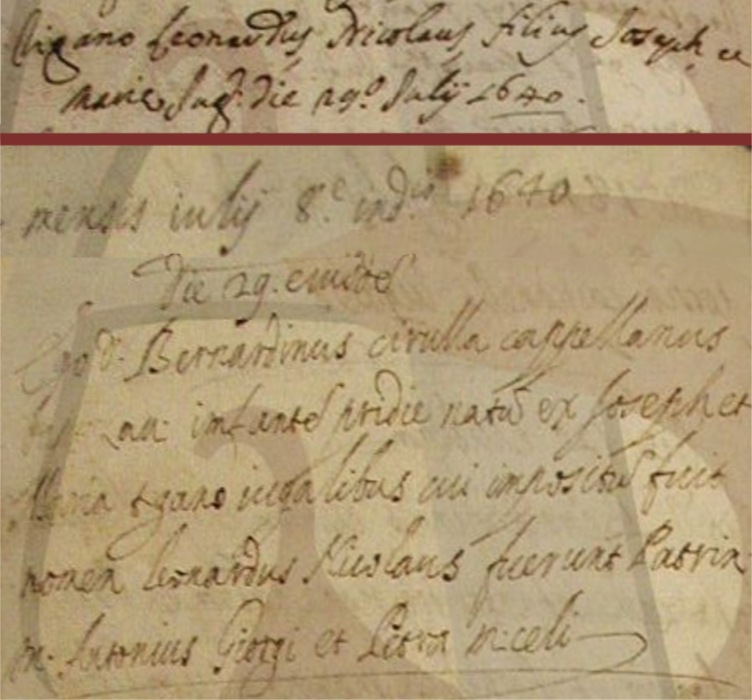 Tigano Leonardus Nicolaus filius Joseph et
Marie Jug. die 29.º Julij 1640.
mensis iulij 8.ᵉ ind.ⁱˢ 1640
Die 29. eiusdē
Ego d. Bernardinus cirulla cappellanus
infantē pridie natū ex Joseph et
Maria tgano iugalibus cui impositū fuit
nomen leonardus Nicolaus fuerunt Patrin
m. Antonius Giorgi et Petra miceli